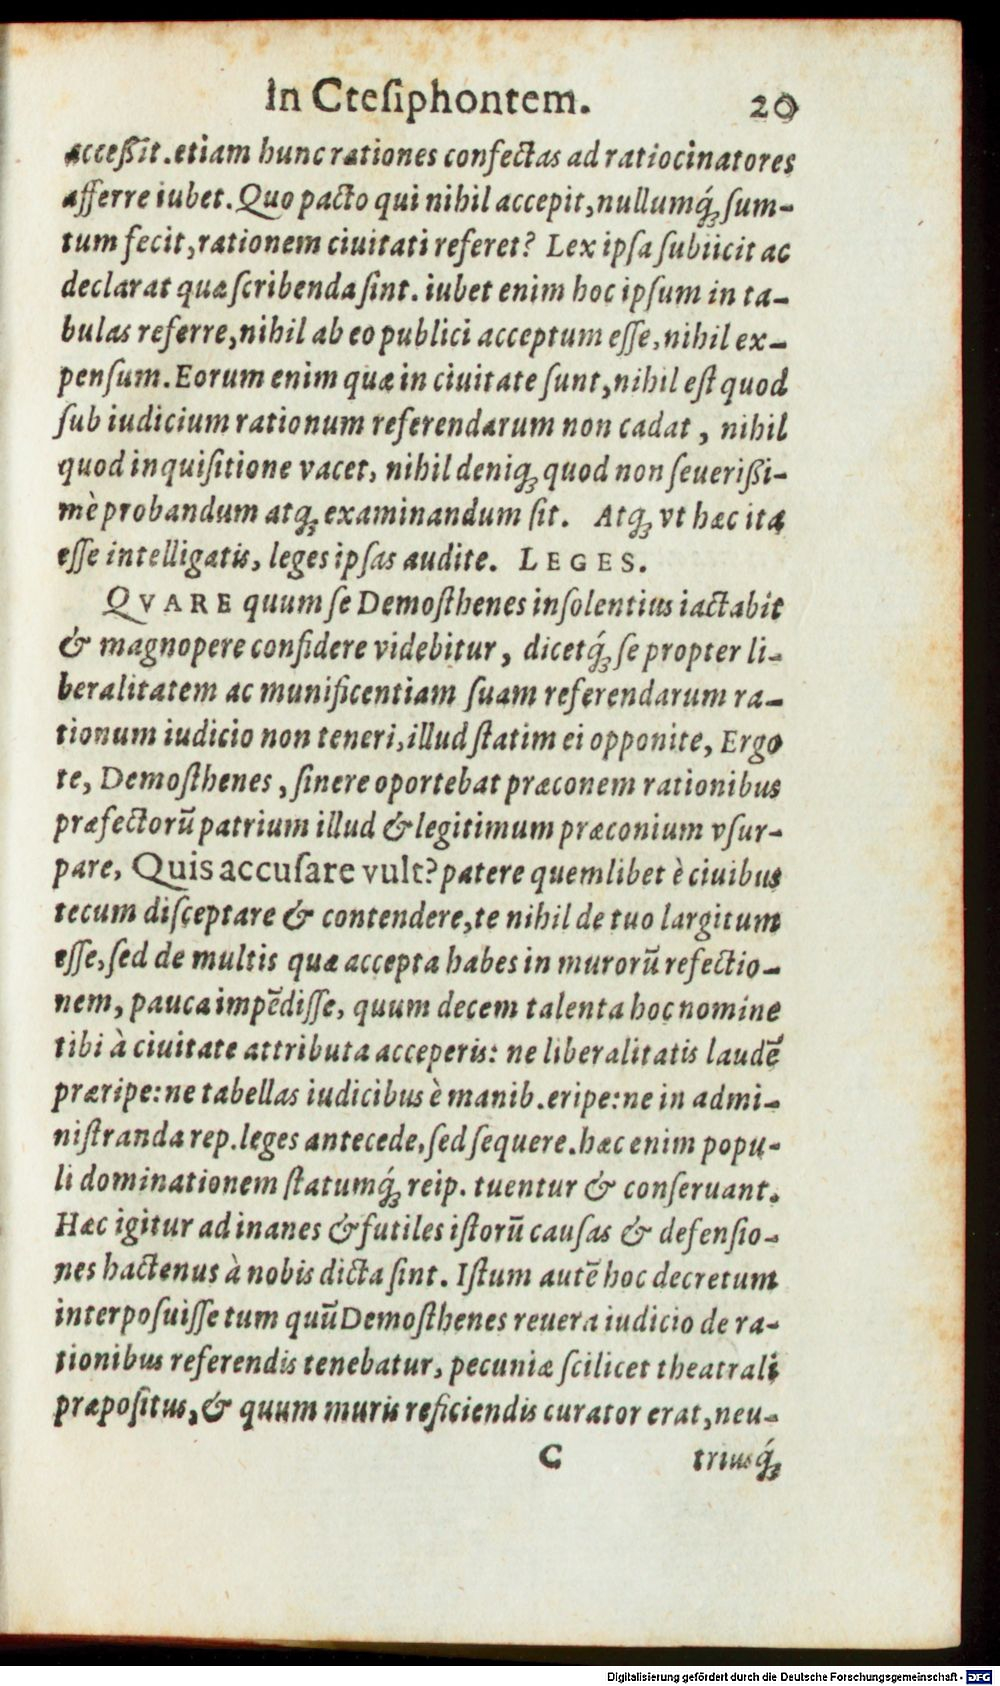 In Cteſiphontem. 20
acceßit. etiam hunc rationes confectas ad ratiocinatores
afferre iubet. Quo pacto qui nihil accepit, nullumq́ꝫ ſum-
tum fecit, rationem ciuitati referet? Lex ipſa ſubiicit ac
declarat quæ ſcribenda ſint. iubet enim hoc ipſum in ta-
bulas referre, nihil ab eo publici acceptum eſſe, nihil ex-
penſum. Eorum enim quæ in ciuitate ſunt, nihil eſt quod
ſub iudicium rationum referendarum non cadat, nihil
quod inquiſitione vacet, nihil deniqꝫ quod non ſeuerißi-
mè probandum atqꝫ examinandum ſit. Atqꝫ vt hæc ita
eſſe intelligatis, leges ipſas audite. LEGES.
QVARE quum ſe Demoſthenes inſolentius iactabit
& magnopere confidere videbitur, dicetq́ꝫ ſe propter li-
beralitatem ac munificentiam ſuam referendarum ra-
tionum iudicio non teneri, illud ſtatim ei opponite, Ergo
te, Demoſthenes, ſinere oportebat præconem rationibus
præfectorū patrium illud & legitimum præconium vſur-
pare, Quis accuſare vult? patere quemlibet è ciuibus
tecum diſceptare & contendere, te nihil de tuo largitum
eſſe, ſed de multis quæ accepta habes in murorū refectio-
nem, pauca impēdiſſe, quum decem talenta hoc nomine
tibi à ciuitate attributa acceperis: ne liberalitatis laudē
præripe: ne tabellas iudicibus è manib. eripe: ne in admi-
niſtranda rep. leges antecede, ſed ſequere. hæc enim popu-
li dominationem ſtatumq́ꝫ reip. tuentur & conſeruant.
Hæc igitur ad inanes & futiles iſtorū cauſas & defenſio-
nes hactenus à nobis dicta ſint. Iſtum autē hoc decretum
interpoſuiſſe tum quū Demoſthenes reuera iudicio de ra-
tionibus referendis tenebatur, pecuniæ ſcilicet theatrali
præpoſitus, & quum muris reficiendis curator erat, neu-
C triusq́ꝫ
Digitalisierung gefördert durch die Deutsche Forschungsgemeinschaft - DFG